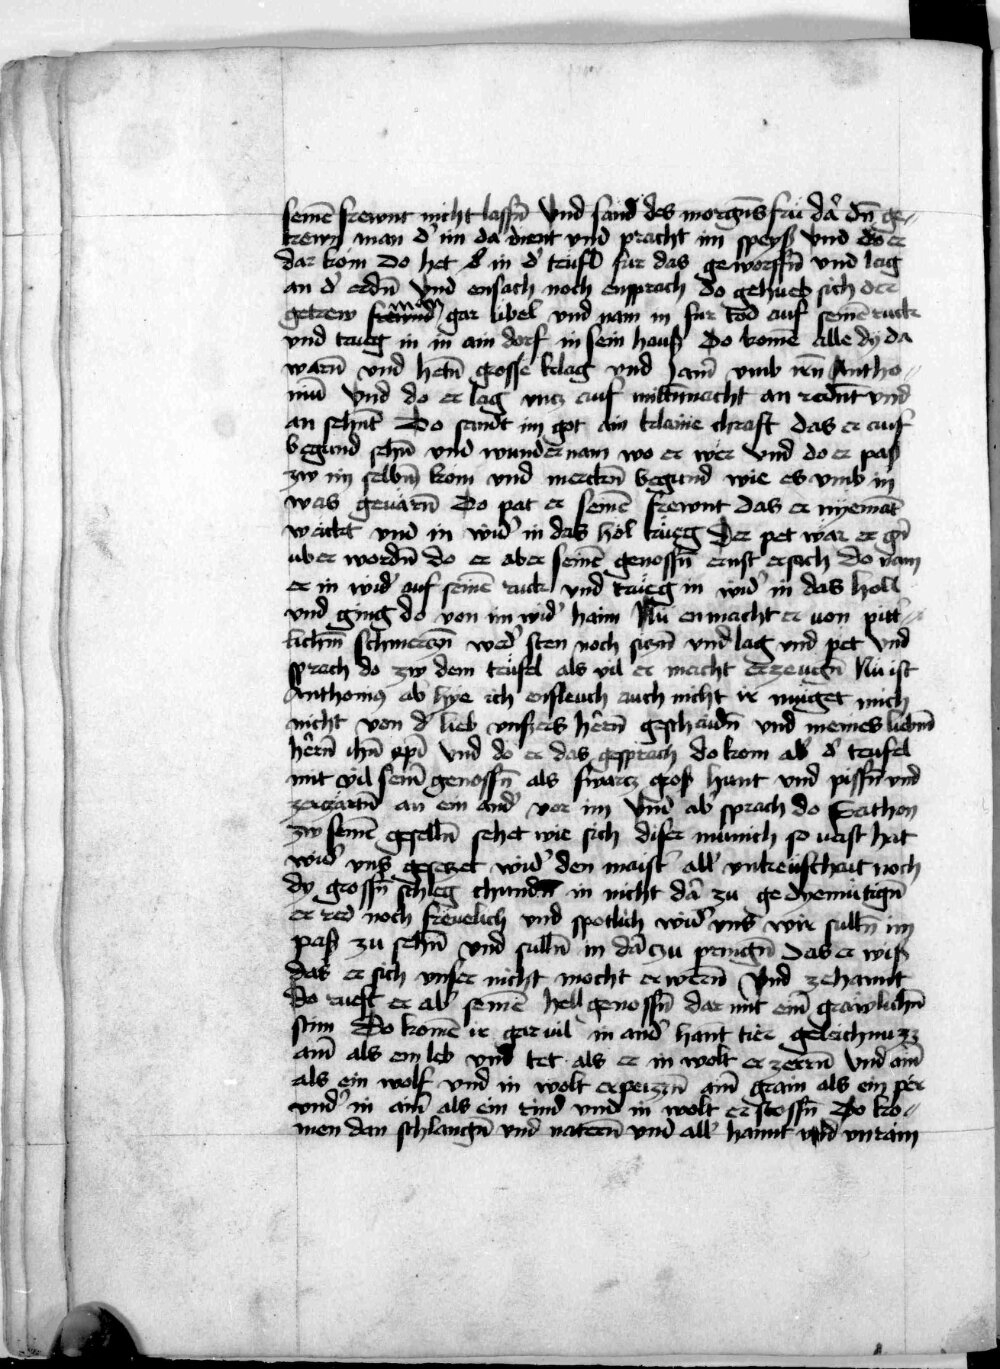 semē frewnt nicht lassn̄ Vnd sand des morgn̄s frü dā dn̄ ge⸗
trewn man d' im da dient vnd pracht im speyß vnd do er
dar kom Do het in d' teufl für das geworffn̄ vnd lag
an d' erdn̄ Vnd ensach noch ensprach do gehueb sich der
getrew man gar übel vnd nam in für tod auf seinē ruck
vnd trueg in in ain dorf in sein hauß Do komē alle dy da
warn̄ vnd hetn̄ grosse klag vnd Jam̄ vmb irn̄ Antho⸗
niū Vnd do er lag vncz auf mittn̄nacht an rednt vnd
an sehnt Do sandt im got ain klaine chraft das er auf
begund sehn̄ vnd wundernam wo er wer Vnd do er paß
zw im selbn̄ kom vnd merckn̄ begund wie es vmb in
was geuarn̄ Do pat er semē frewnt das er nyemāt
weckt vnd in wid' in das hol trüeg Der pet wär er gn̄
über wordn̄ do er aber semē genossn̄ ernst ersach do nam
er in wid' auf seinē ruck vnd trueg in wid' in das holl
vnd ging do von im wid' haim Nu enmacht er von pitt'⸗
lichm̄ schmerczn̄ wed' sten noch siczn̄ vnd lag vnd pet vnd
sprach do zw dem teufel als vil er macht erzeugn̄ Nu ist
Anthonig ab hye ich enfleuch auch nicht ir muget mich
nicht von d' lieb vnsers hērn̄ geschaidn̄ vnd meines liebm̄
hērn̄ ihū xpī Vnd do er das gesprach do kom ab' d' teufel
mit vil seim̄ genossn̄ als swarcz groß hunt vnd pissn̄ vnd
zerczartn̄ an ein and' vor im Vnd ab' sprach do Sathon
zw semē geselln̄ sehet wie sich diser münich so vast hat
wid' vns geseczet wid' den maist' all' vntreuschait noch
dy grossn̄ schleg chundn̄ in nicht dā zu gedyemütign̄
er red noch freuelich vnd spotlich wid' vns wir sulln̄ im
paß zu sehn̄ vnd sulln̄ in dā czu pringn̄ das er wiß
das er sich vnser nicht mocht erwern̄ Vnd zehannt
do rueft er ab' semē hell genossn̄ dar mit eim̄ grawlichn̄
stim Do komē ir gar vil in and' hant tier geleichnuzz
ain̄ als ein leb vnd tet als er in wolt erzerrn̄ Vnd ain̄
als ein wolf vnd in wolt erpeizzn̄ ain̄ grain als ein per
vnd' in ain̄ als ein rind vnd in wolt erstossn̄ Do ko⸗
men dan schlangn̄ vnd natern̄ vnd all' hannt vnd vnraim